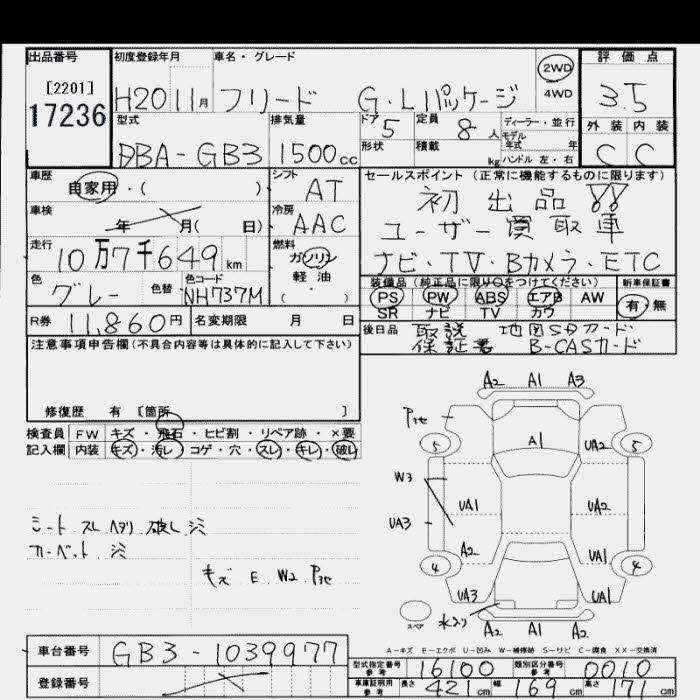 出品番号 初度登録年月 車名・グレード 2WD 評価点
[2201] 17236 H20 11月 フリード G・Lパッケージ 4WD 3.5
型式 排気量 ドア 5 定員 8人 ディーラー・並行 モデル年式 年 外装 内装
DBA-GB3 1500cc 形状 積載 kg ハンドル 左・右 C C
車歴 シフト セールスポイント (正常に機能するものに限ります)
自家用・( ) AT 初出品!!
車検 年 月( 日) 冷房 AAC ユーザー買取車
走行 10万7千649km 燃料 ガソリン ナビ・TV・Bカメラ・ETC
色 グレー 色替 色コード NH737M 軽油 ( ・ )
装備品 (純正品に限り○をつけてください) 新車保証書
PS PW ABS エアB AW 有・無
SR ナビ TV カワ
R券 11,860円 名変期限 月 日
後日品 取説 地図SDカード
保証書 B-CASカード
注意事項申告欄 (不具合内容等は具体的に記入して下さい)
修復歴 有 [箇所 ]
検査員 FW キズ・飛石・ヒビ割・リペア跡・×要
記入欄 内装 キズ・汚レ・コゲ・穴・スレ・キレ・破レ
A2 A1 A3
5 A1 UA2 5
W3 UA1 UA2
UA3
A2 UA1
4 4
UA3 UA1
スペア 水入り
A2 A1 A2
シート スレ ヘタリ 破レ シミ
カーペット シミ
キズ E W2
A-キズ E-エクボ U-凹み W-補修跡 S-サビ C-腐食 XX-交換済
車台番号 GB3-1039977
登録番号
型式指定番号 参考 16100 類別区分番号 参考 0010
車庫証明用 参考 長さ 421cm 幅 169cm 高さ 171cm